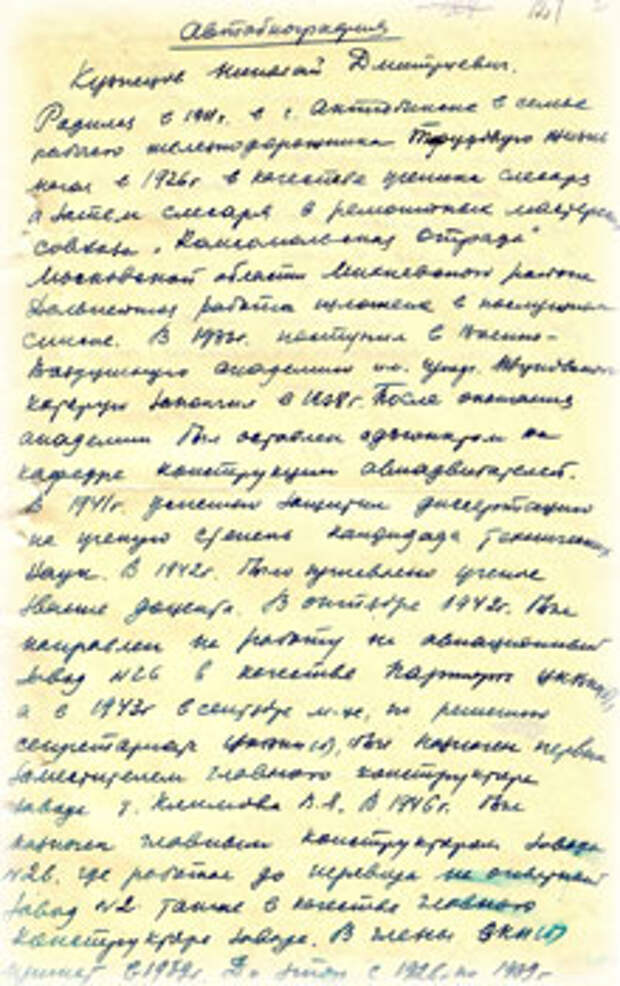 Автобиография
Кузнецов Николай Дмитриевич.
Родился в 1911г. в г. Актюбинске в семье
рабочего железнодорожника Трудовую жизнь
начал в 1926г в качестве ученика слесаря
а затем слесаря в ремонтных мастерских
совхоза "Комсомольская Отрада"
Московской области Михневского района
Дальнейшая работа изложена в послужном
списке. В 1933г. поступил в Военно-
Воздушную академию им. проф. Жуковского
которую закончил в 1938г. После окончания
академии был оставлен адъюнктом на
кафедре конструкции авиадвигателей.
В 1941г. успешно защитил диссертацию
на ученую степень кандидата технических
наук. В 1942г. было присвоено ученое
звание доцента. В октябре 1942г. был
направлен на работу на авиационный
завод №26 в качестве парторга ЦК ВКП(б),
а в 1943г в сентябре м-це, по решению
секретариата ЦК ВКП(б), был назначен первым
заместителем главного конструктора
завода т. Климова В.Я. В 1946г. был
назначен главным конструктором завода
№26, где работал до перевода на опытный
завод №2 также в качестве главного
конструктора завода. В члены ВКП(б)
принят в 1939г. До этого с 1926 по 1939г